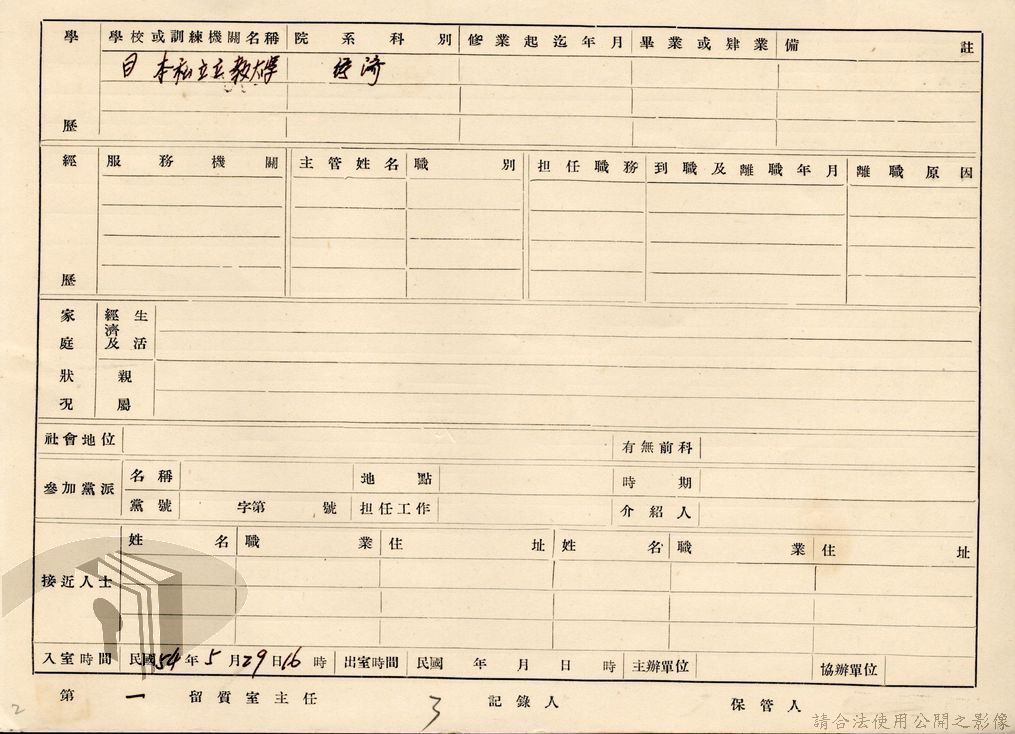 學歷 學校或訓練機關名稱 院系科別 修業起迄年月 畢業或肄業 備註
日本私立立教大学 経済
經歷 服務機關 主管姓名 職別 担任職務 到職及離職年月 離職原因
家庭狀況 經濟及生活
親屬
社會地位 有無前科
參加黨派 名稱 地點 時期
黨號 字第 號 担任工作 介紹人
接近人士 姓名 職業 住址 姓名 職業 住址
入室時間 民國54年5月29日16時 出室時間 民國 年 月 日 時 主辦單位 協辦單位
第一留質室主任 3 記錄人 保管人
2
請合法使用公開之影像